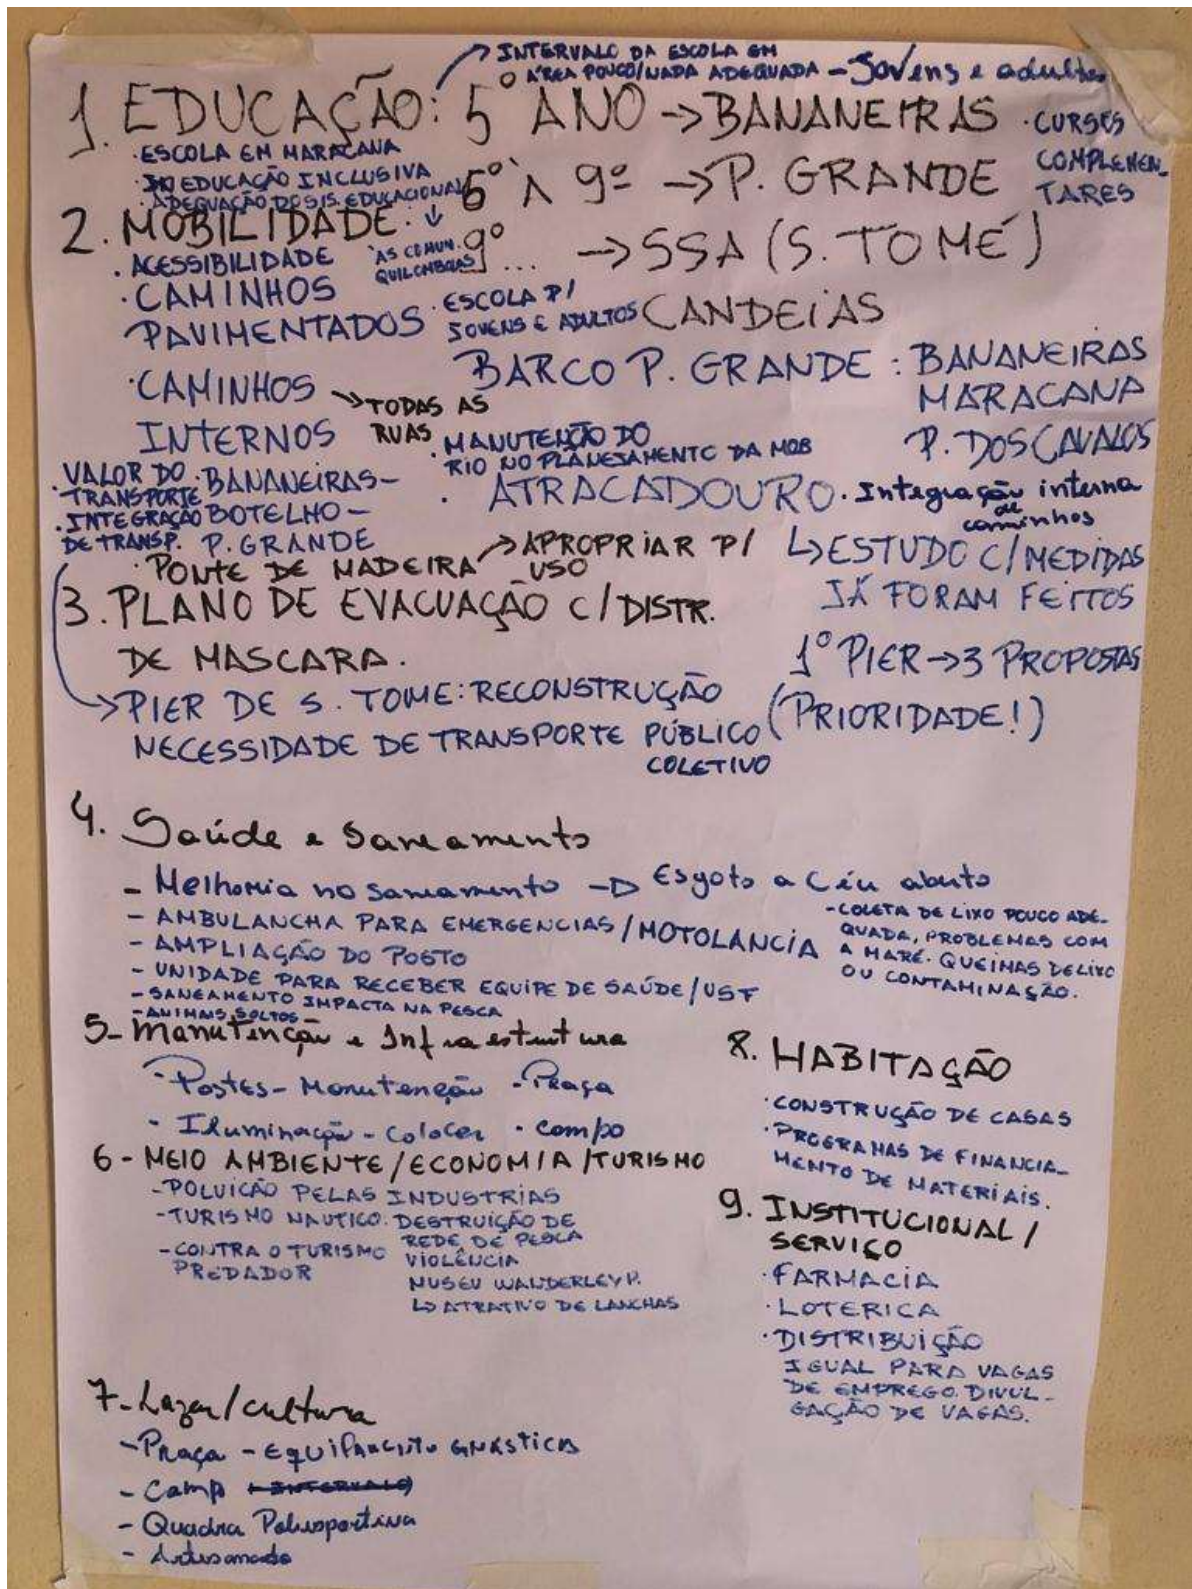 INTERVALO DA ESCOLA EM
ÁREA POUCO/NADA ADEQUADA - Jovens e adultos
1. EDUCAÇÃO: 5º ANO → BANANEIRAS
· CURSOS
COMPLEMEN_
TARES
· ESCOLA EM MARACANA
EDUCAÇÃO INCLUSIVA
· ADEQUAÇÃO DO SIS. EDUCACIONAL ↓
ÀS COMUN.
QUILOMBOLAS
5º À 9º → P. GRANDE
9º ... → SSA (S. TOMÉ)
CANDEIAS
· ESCOLA P/
JOVENS E ADULTOS
2. MOBILIDADE:
· ACESSIBILIDADE
· CAMINHOS
PAVIMENTADOS
BARCO P. GRANDE: BANANEIRAS
MARACANA
P. DOS CAVALOS
· CAMINHOS
INTERNOS
→ TODAS AS
RUAS
· MANUTENÇÃO DO
RIO NO PLANEJAMENTO DA MOB
· VALOR DO
TRANSPORTE
· INTEGRAÇÃO
DE TRANSP.
· BANANEIRAS-
BOTELHO-
P. GRANDE
· ATRACADOURO
· Integração interna
de
caminhos
↳ ESTUDO C/ MEDIDAS
JÁ FORAM FEITOS
1º PIER → 3 PROPOSTAS
(PRIORIDADE!)
· PONTE DE MADEIRA → APROPRIAR P/
USO
3. PLANO DE EVACUAÇÃO C/ DISTR.
DE MASCARA.
→ PIER DE S. TOME: RECONSTRUÇÃO
NECESSIDADE DE TRANSPORTE PÚBLICO
COLETIVO
4. Saúde e Saneamento
- Melhoria no saneamento → Esgoto a Céu aberto
- AMBULANCHA PARA EMERGENCIAS/MOTOLANCIA
- AMPLIAÇÃO DO POSTO
- UNIDADE PARA RECEBER EQUIPE DE SAÚDE/USF
- SANEAMENTO IMPACTA NA PESCA
- ANIMAIS SOLTOS
- COLETA DE LIXO POUCO ADE-
QUADA, PROBLEMAS COM
A MARÉ. QUEIMAS DE LIXO
OU CONTAMINAÇÃO.
5- Manutenção e Infraestrutura
· Postes - Manutenção · Praça
· Iluminação - Colocar · campo
6- MEIO AMBIENTE/ECONOMIA/TURISMO
- POLUIÇÃO PELAS INDUSTRIAS
- TURISMO NAUTICO: DESTRUIÇÃO DE
REDE DE PESCA
VIOLÊNCIA
MUSEU WANDERLEY P.
↳ ATRATIVO DE LANCHAS
- CONTRA O TURISMO
PREDADOR
7- Lazer/cultura
- Praça - EQUIPAMENTO GNÁSTICA
- Campo INTERVALO
- Quadra Poliesportiva
- Artesanado
8. HABITAÇÃO
· CONSTRUÇÃO DE CASAS
· PROGRAMAS DE FINANCIA_
MENTO DE MATERIAIS.
9. INSTITUCIONAL/
SERVIÇO
· FARMACIA
· LOTERICA
· DISTRIBUIÇÃO
IGUAL PARA VAGAS
DE EMPREGO. DIVUL-
GAÇÃO DE VAGAS.